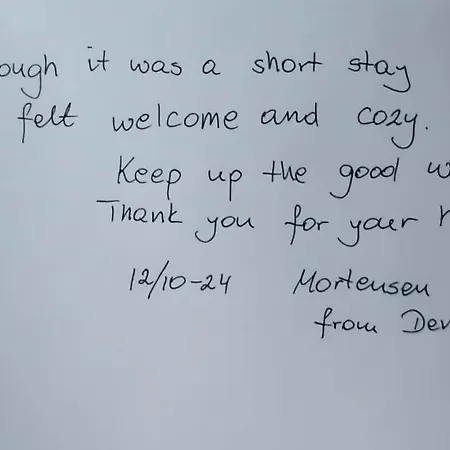 ough it was a short stay
felt welcome and cozy.
Keep up the good w
Thank you for your h
12/10-24 Mortensen
from Den